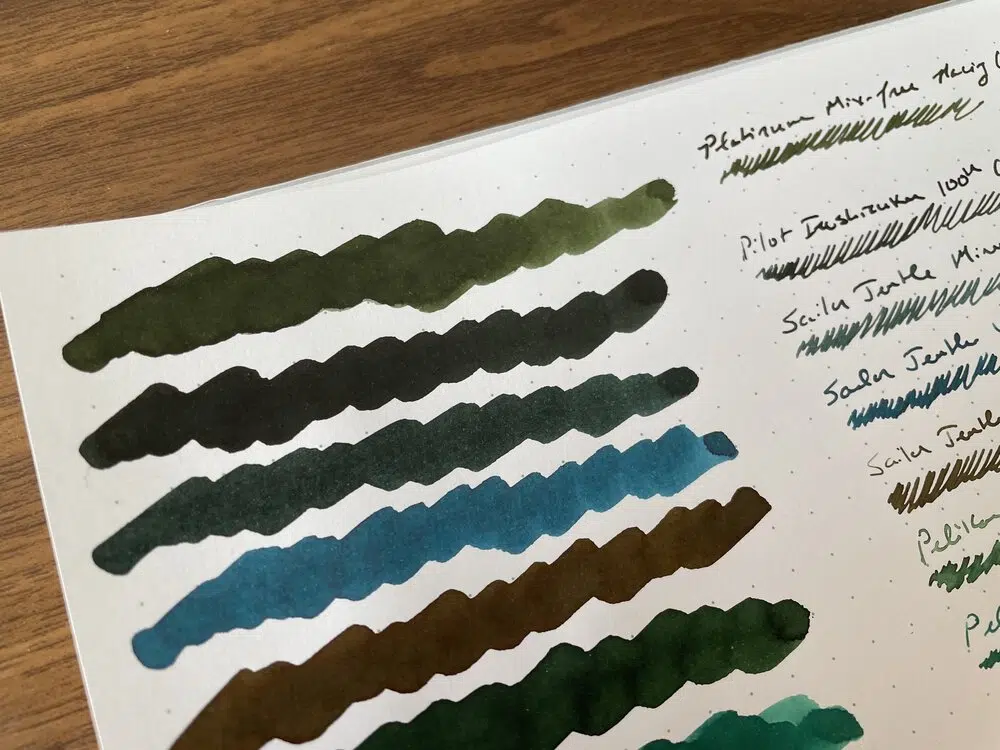 Platinum Mix-free
Pilot Iroshizuku 100th (
Sailor Jentle
Sailor Jentle
Sailor Jentle
Pelikan
Pel